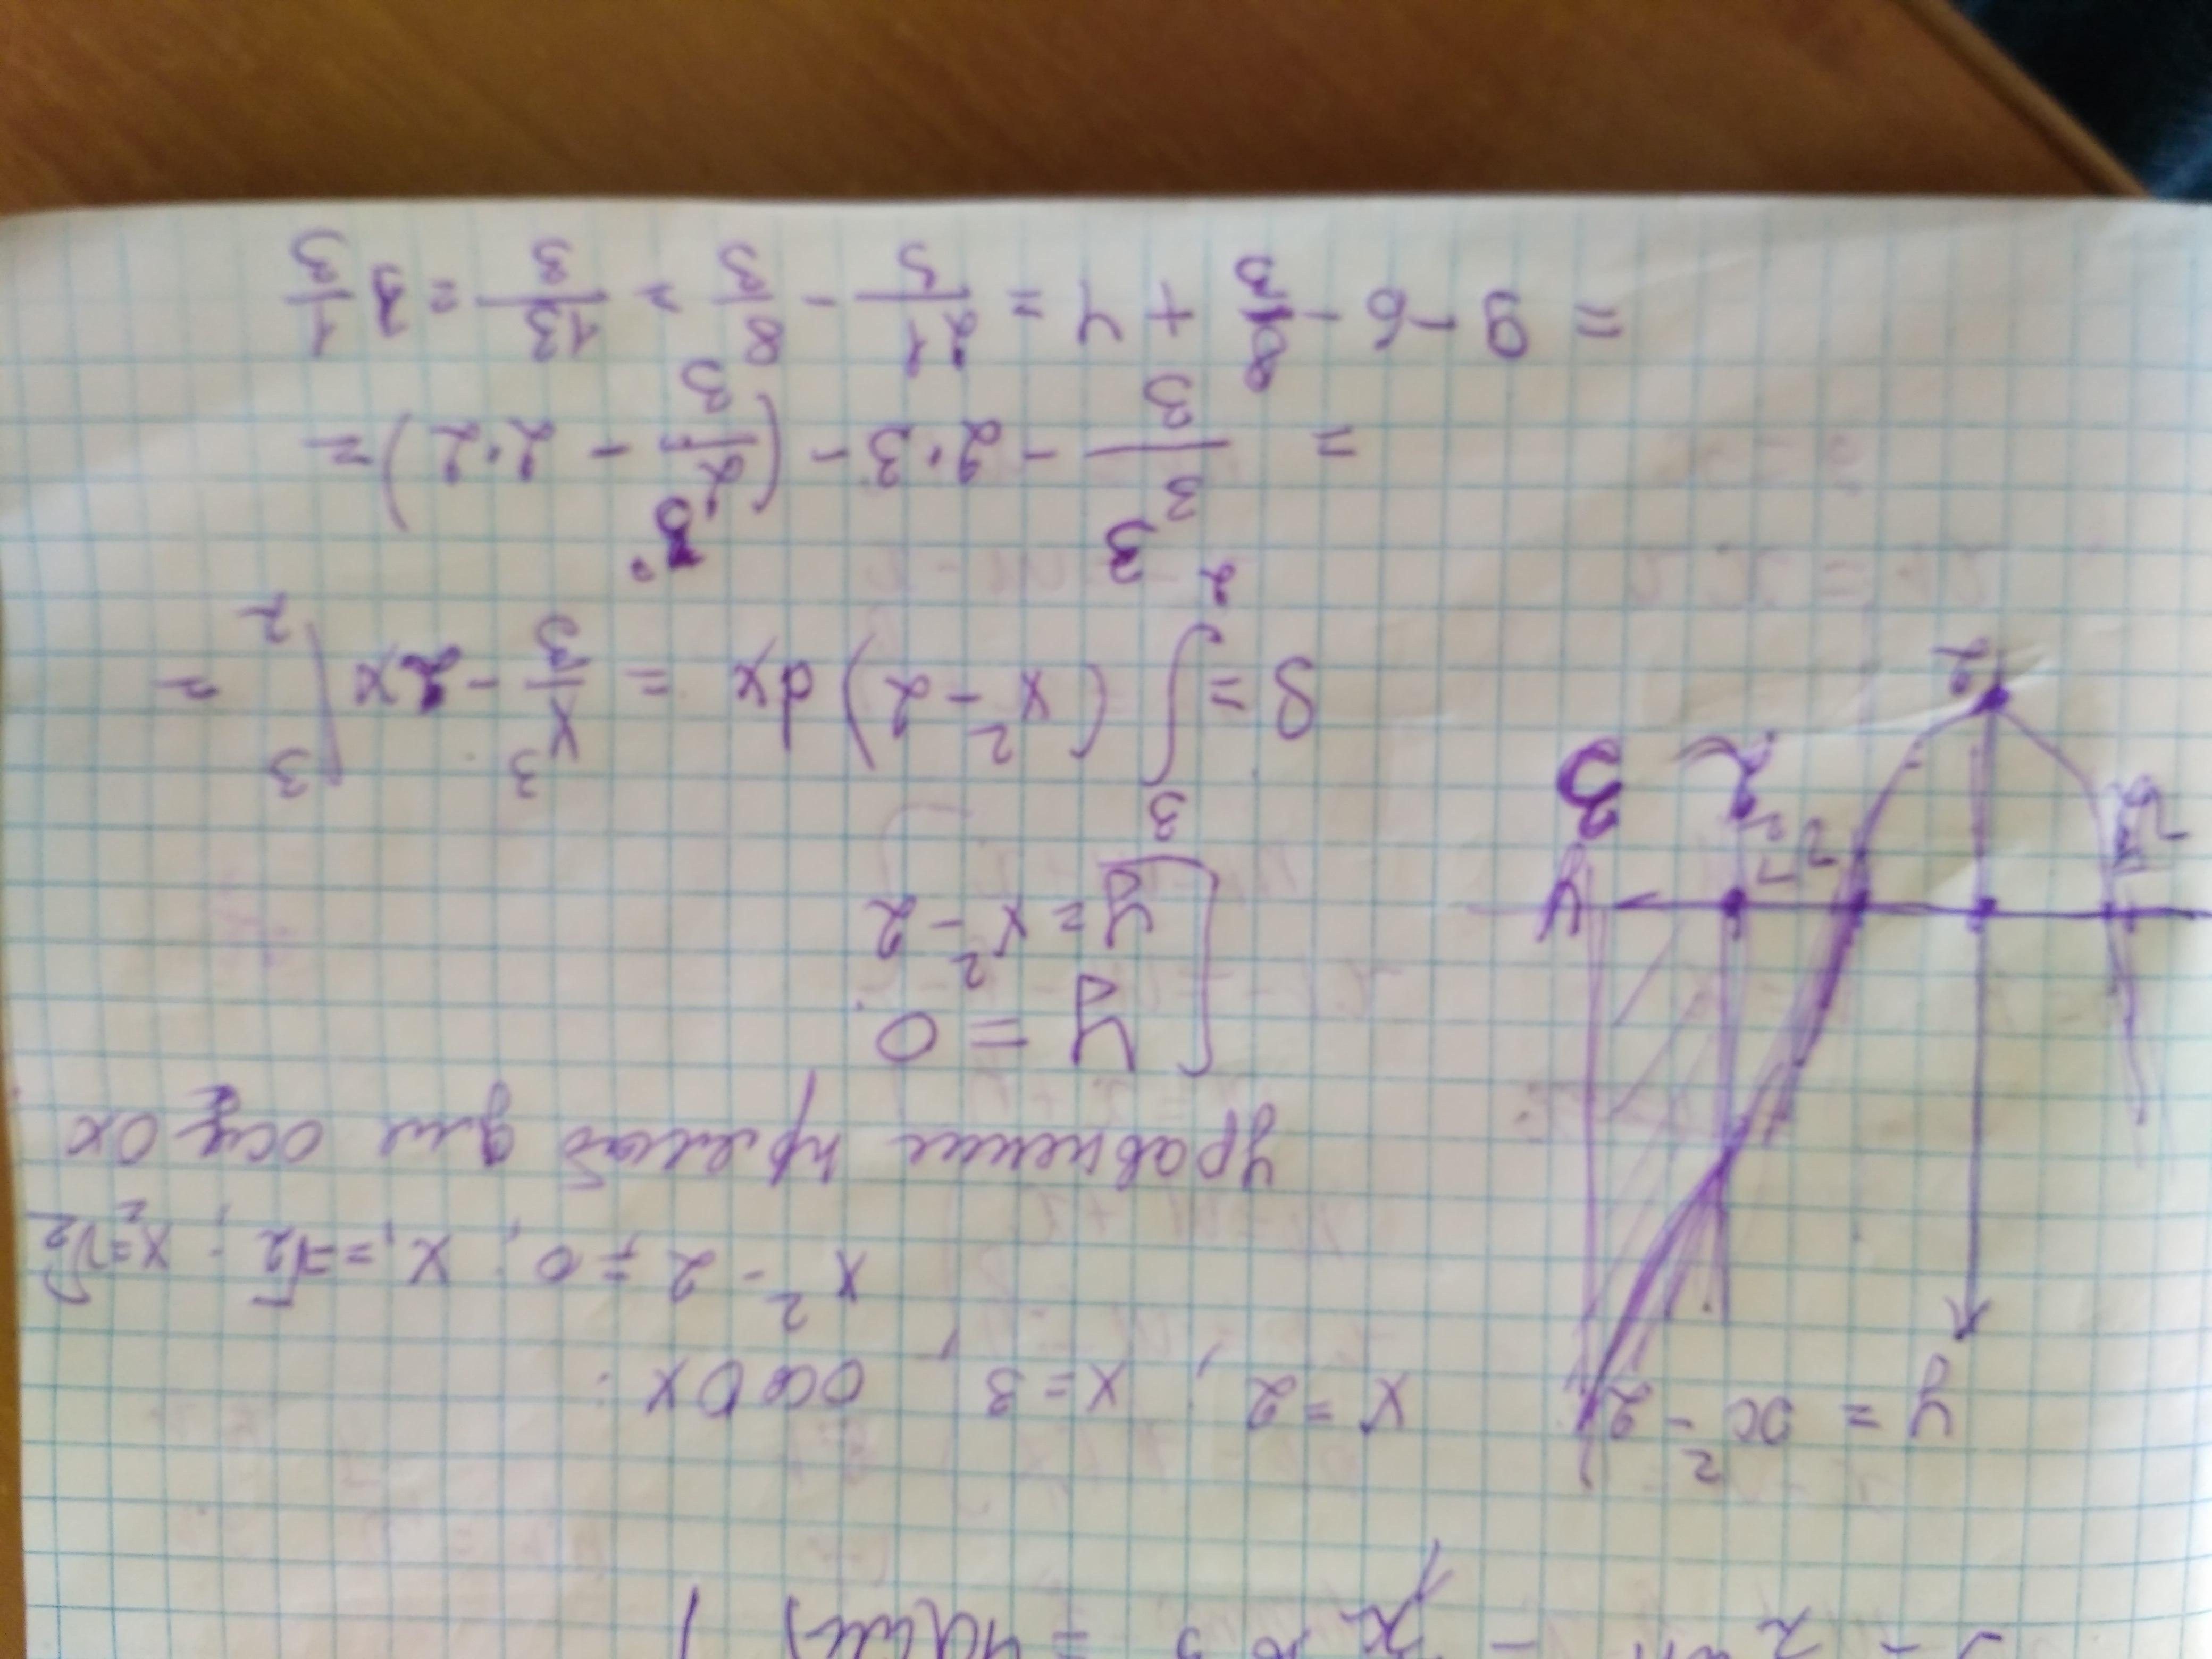 y = x² - 2
x = 2, x = 3, ось OX.
x² - 2 = 0; x₁ = -√2; x₂ = √2
уравнение прямой для оси OX
y = 0
y = x² - 2
S = ∫₂³ (x² - 2) dx = x³/3 - 2x |₂³ =
= 3³/3 - 2·3 - (2³/3 - 2·2) =
= 9 - 6 - 8/3 + 4 = 21/3 - 8/3 = 13/3 = 3 1/3
-√2
√2
2
3
x
-2